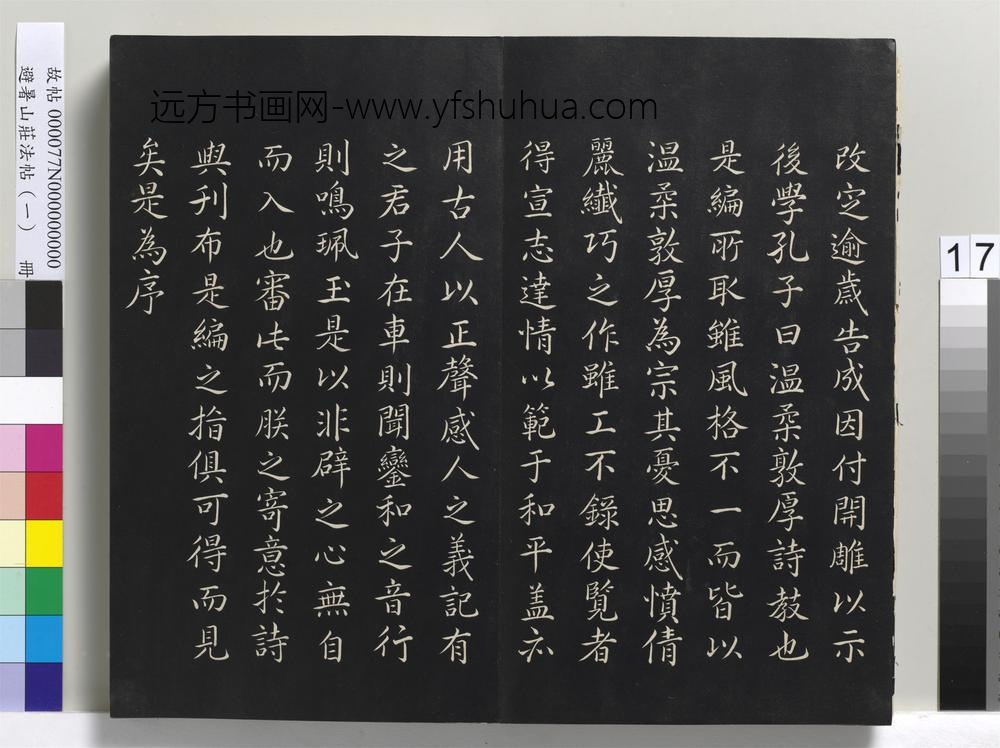 改定逾歲告成因付開雕以示
後學孔子曰溫柔敦厚詩教也
是編所取雖風格不一而皆以
溫柔敦厚為宗其憂思感憤倩
麗纖巧之作雖工不錄使覽者
得宣志達情以範于和平盖亦
用古人以正聲感人之義記有
之君子在車則聞鑾和之音行
則鳴珮玉是以非辟之心無自
而入也審此而朕之寄意於詩
與刊布是編之指俱可得而見
矣是為序
远方书画网-www.yfshuhua.com
故帖000077N000000000
避暑山莊法帖(一) 冊
17